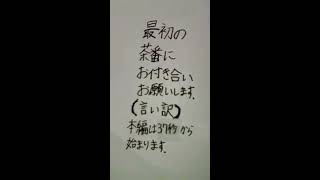 最初の
茶番に
お付き合い
お願いします。
(言い訳)
本編は37秒から
始まります。